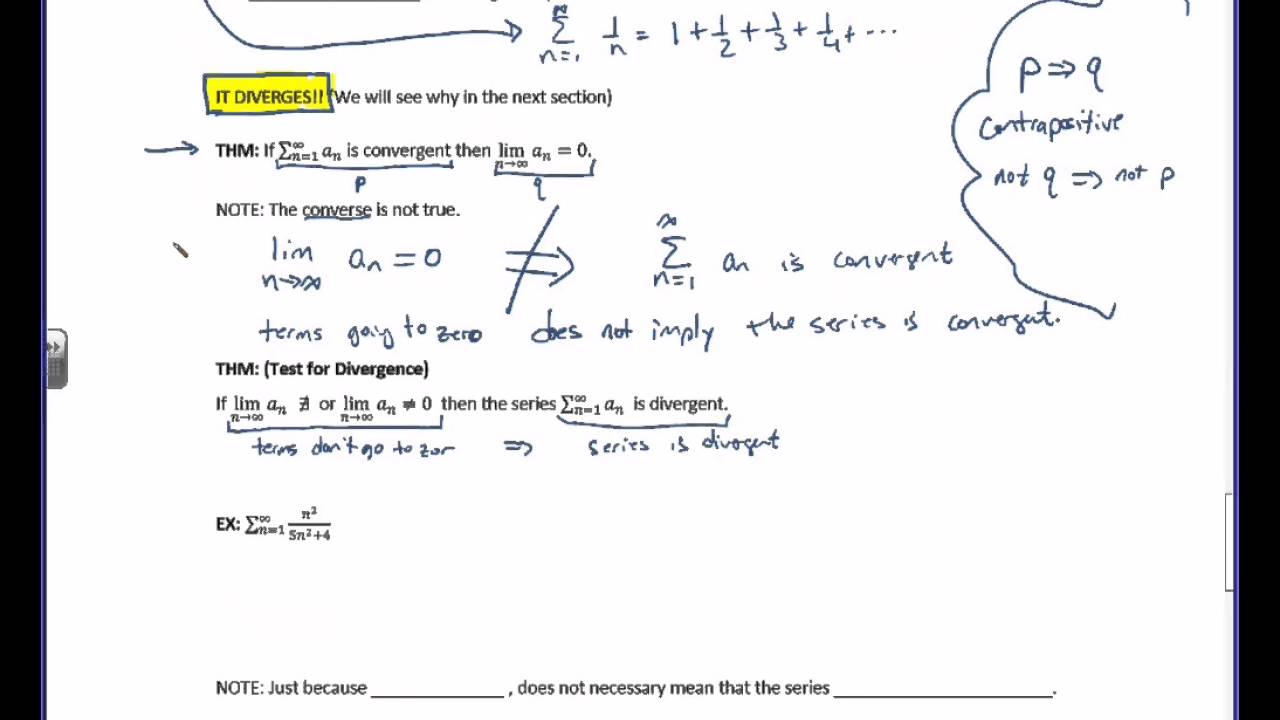 ∞
∑ 1/n = 1 + 1/2 + 1/3 + 1/4 + ...
n=1
IT DIVERGES!! (We will see why in the next section)
p ⇒ q
contrapositive
not q ⇒ not p
THM: If ∑ₙ₌₁^∞ aₙ is convergent then lim n→∞ aₙ = 0.
p q
NOTE: The converse is not true.
lim n→∞ aₙ = 0 ⇏ ∑ n=1 ∞ aₙ is convergent
terms going to zero does not imply the series is convergent.
THM: (Test for Divergence)
If lim n→∞ aₙ ∄ or lim n→∞ aₙ ≠ 0 then the series ∑ₙ₌₁^∞ aₙ is divergent.
terms don't go to zor ⇒ series is divogent
EX: ∑ₙ₌₁^∞ n²/(5n²+4)
NOTE: Just because ____________ , does not necessary mean that the series ____________________.